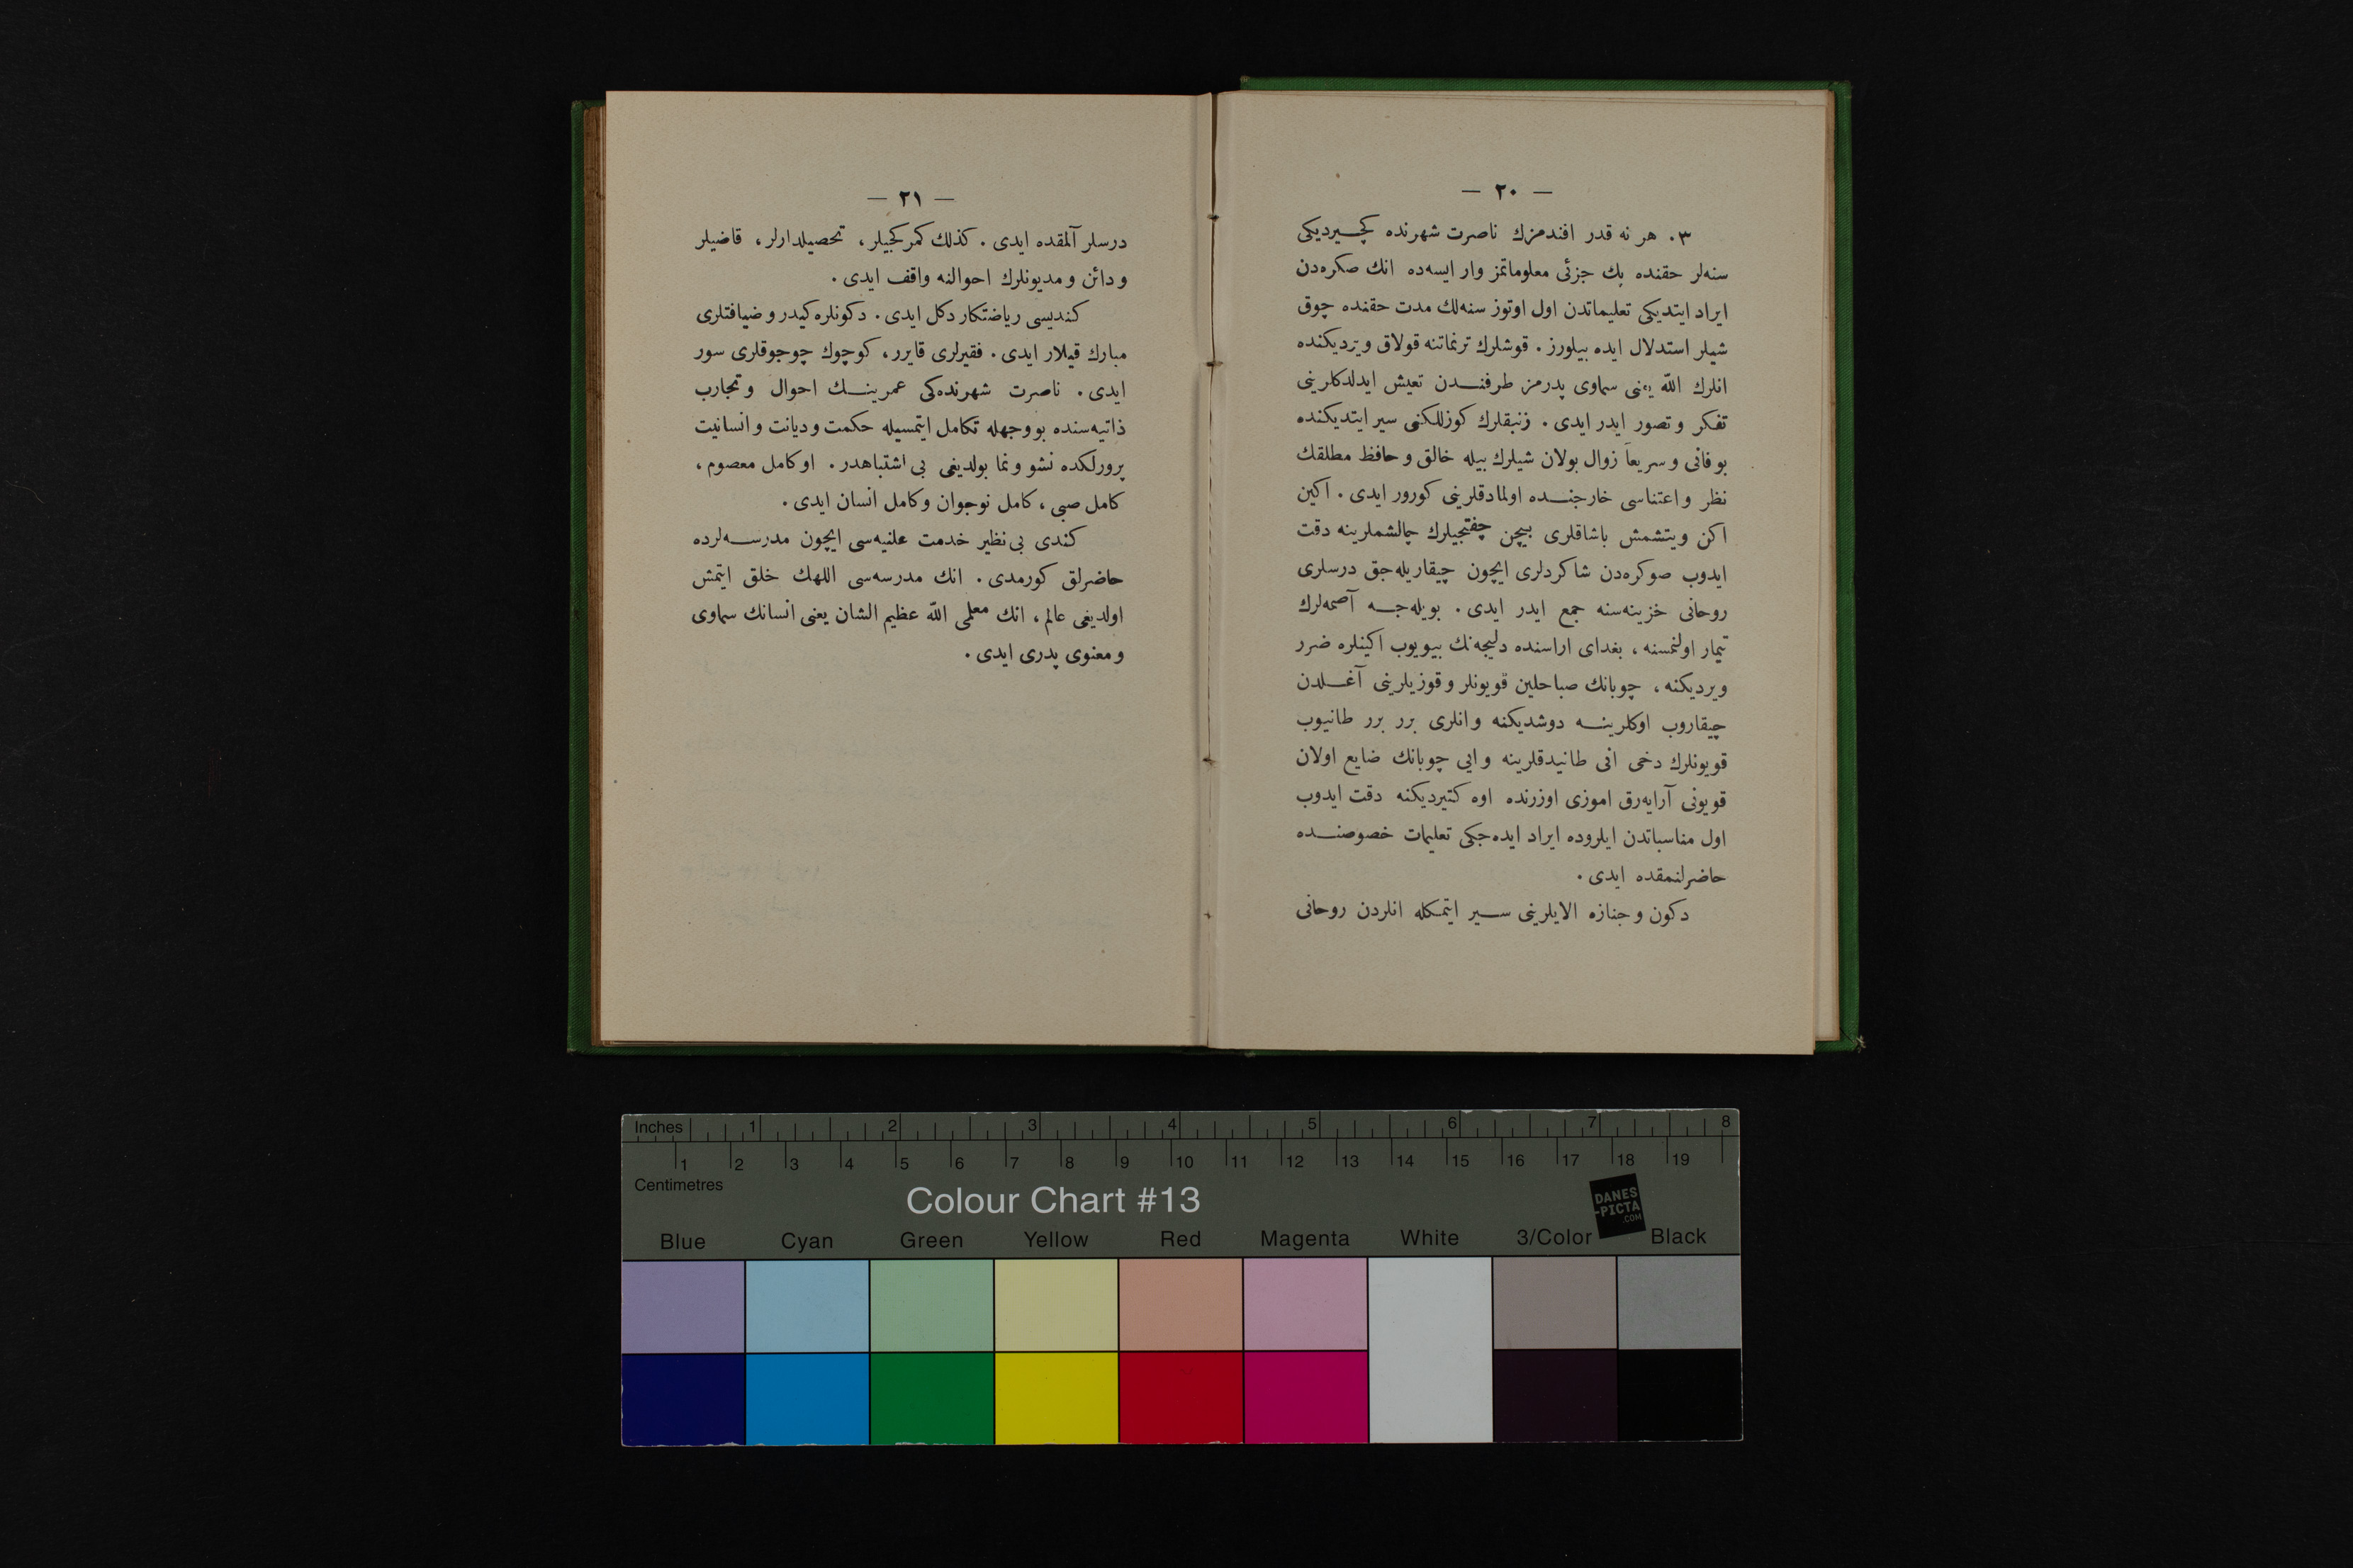 — ٢٠ —
٣. هر نه قدر افندمزك ناصرت شهرنده كچيرديكى
سنه‌لر حقنده پك جزئى معلوماتمز وار ايسه‌ده انك صكره‌دن
ايراد ايتديكى تعليماتدن اول اوتوز سنه‌لك مدت حقنده چوق
شيلر استدلال ايده بيلورز . قوشلرك ترنماتنه قولاق ويرديكنده
انلرك اللّه يعنى سماوى پدرمز طرفندن تعيش ايدلدكلرينى
تفكر و تصور ايدر ايدى . زنبقلرك كوزللكنى سير ايتديكنده
بو فانى و سريعاً زوال بولان شيلرك بيله خالق و حافظ مطلقك
نظر و اعتناسى خارجنده اولمادقلرينى كورور ايدى . اكين
اكن ويتشمش باشاقلرى بيچن چفتجيلرك چالشملرينه دقت
ايدوب صوكره‌دن شاكردلرى ايچون چيقاريله‌جق درسلرى
روحانى خزينه‌سنه جمع ايدر ايدى . بويله‌جه آصمه‌لرك
تيمار اولنمسنه ، بغداى اراسنده دليجه‌نك بيويوب اكينلره ضرر
ويرديكنه ، چوبانك صباحلين قويونلر و قوزيلرينى آغلدن
چيقاروب اوكلرينه دوشديكنه وانلرى برر برر طانيوب
قويونلرك دخى انى طانيدقلرينه وايى چوبانك ضايع اولان
قويونى آرايه‌رق اموزى اوزرنده اوه كتيرديكنه دقت ايدوب
اول مناسباتدن ايلروده ايراد ايده‌جكى تعليمات خصوصنده
حاضرلنمقده ايدى .
دكون و جنازه الايلرينى سير ايتمكله انلردن روحانى
— ٢١ —
درسلر آلمقده ايدى . كذلك كمركجيلر ، تحصيلدارلر ، قاضيلر
و دائن و مديونلرك احوالنه واقف ايدى .
كنديسى رياضتكار دكل ايدى . دكونلره كيدر و ضيافتلرى
مبارك قيلار ايدى . فقيرلرى قايرر ، كوچوك چوجوقلرى سور
ايدى . ناصرت شهرنده‌كى عمرينك احوال و تجارب
ذاتيه‌سنده بو وجهله تكامل ايتمسيله حكمت و ديانت و انسانيت
پرورلكده نشو و نما بولديغى بى اشتباهدر . او كامل معصوم ،
كامل صبى ، كامل نوجوان و كامل انسان ايدى .
كندى بى نظير خدمت علنيه‌سى ايچون مدرسه‌لرده
حاضرلق كورمدى . انك مدرسه‌سى اللهك خلق ايتمش
اولديغى عالم ، انك معلمى اللّه عظيم الشان يعنى انسانك سماوى
و معنوى پدرى ايدى .
Inches 1 2 3 4 5 6 7 8
1 2 3 4 5 6 7 8 9 10 11 12 13 14 15 16 17 18 19
Centimetres
Colour Chart #13
DANES
-PICTA
.COM
Blue Cyan Green Yellow Red Magenta White 3/Color Black